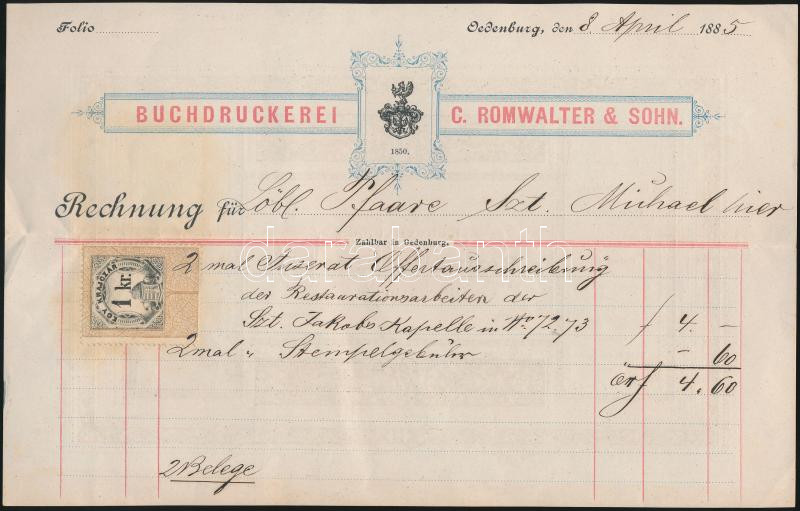 Folio
Oedenburg, den 8. April 1885
BUCHDRUCKEREI C. ROMWALTER & SOHN.
1850.
Rechnung für Löbl. Pfaare Szt. Michael hier
Zahlbar in Oedenburg.
2 mal Inserat Offertausschreibung
der Restaurationsarbeiten der
Szt. Jakobs Kapelle in No. 72. 73 f 4. –
2 mal " Stempelgebühr – 60
öW f 4. 60
2 Belege
EGY KRAJCZÁR
1 kr.
darabanth